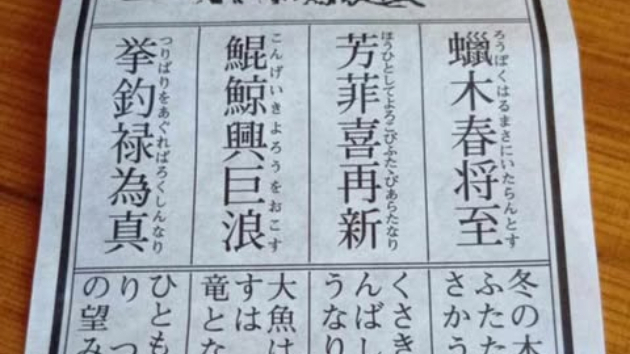 蠟木春将至
ろうぼくはるまさにいたらんとす
芳菲喜再新
ほうひとしてよろこびふたゝびあらたなり
鯤鯨興巨浪
こんげいきよろうをおこす
挙釣禄為真
つりばりをあぐればろくしんなり
冬の木
ふたた
さかう
くさき
んばし
うなり
大魚は
すは
竜とな
ひとも
り つ
の望み